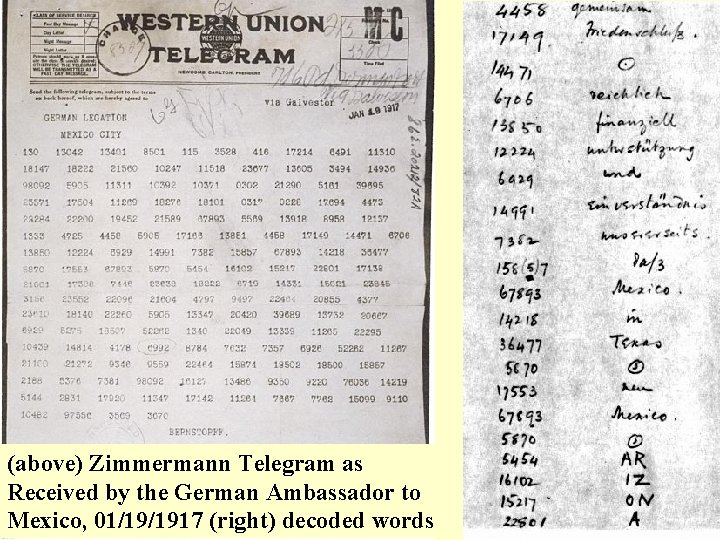 CLASS OF SERVICE DESIRED
Fast Day Message
Day Letter
Night Message
Night Letter
WESTERN UNION
WESTERN UNION
TELEGRAM
NEWCOMB CARLTON, PRESIDENT
CHARGE
Time Filed
Send the following telegram, subject to the terms
on back hereof, which are hereby agreed to
via Galveston
JAN 19 1917
GERMAN LEGATION
MEXICO CITY
130 13042 13401 8501 115 3528 416 17214 6491 11310
18147 18222 21560 10247 11518 23677 13605 3494 14936
98092 5905 11311 10392 10371 0302 21290 5161 39695
23571 17504 11269 18276 18101 0317 0228 17694 4473
23284 22200 19452 21589 67893 5569 13918 8958 12137
1333 4725 4458 5905 17166 13851 4458 17149 14471 6706
13850 12224 6929 14991 7382 15857 67893 14218 36477
5870 17553 67893 5870 5454 16102 15217 22801 17138
21001 17388 7446 23638 18222 6719 14331 15021 23845
3156 23552 22096 21604 4797 9497 22464 20855 4377
23610 18140 22260 5905 13347 20420 39689 13732 20667
6929 5275 18507 52262 1340 22049 13339 11265 22295
10439 14814 4178 6992 8784 7632 7357 6926 52262 11267
21100 21272 9346 9559 22464 15874 18502 18500 15857
2188 5376 7381 98092 16127 13486 9350 9220 76036 14219
5144 2831 17920 11347 17142 11264 7667 7762 15099 9110
10482 97556 3569 3670
BERNSTORFF.
4458 gemeinsam
17149 Friedenschluß.
14471 ⊙
6706 reichlich
13850 finanziell
12224 unterstützung
6929 und
14991 Einverständnis
7382 unsererseits.
158(5)7 Daß
67893 Mexico.
14218 in
36477 Texas
5870 ⊙
17553 neu
67893 Mexico.
5870 ⊙
5454 AR
16102 IZ
15217 ON
22801 A
(above) Zimmermann Telegram as
Received by the German Ambassador to
Mexico, 01/19/1917 (right) decoded words